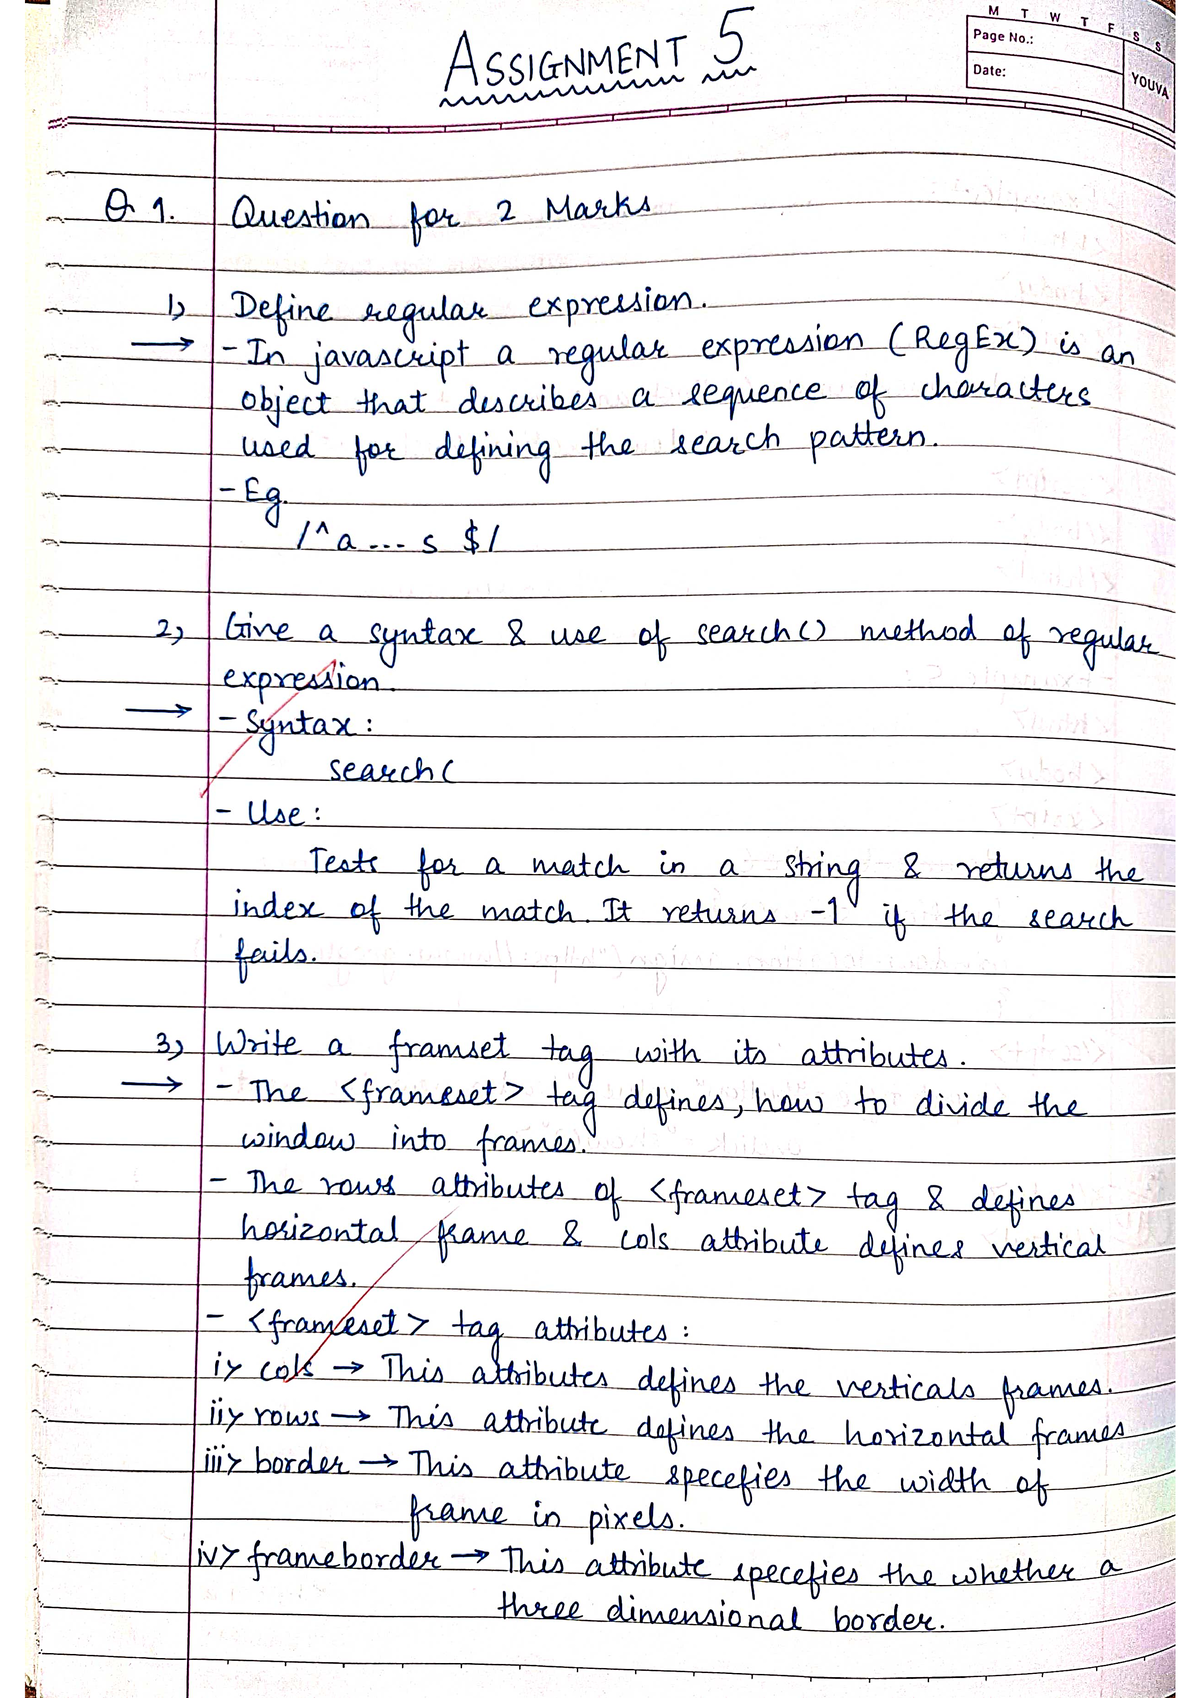 ASSIGNMENT 5
M T W T F S S
Page No.:
Date:
YOUVA
Q 1. Question for 2 Marks
1) Define regular expression.
→ - In javascript a regular expression (RegEx) is an
object that describes a sequence of characters
used for defining the search pattern.
- Eg.
/^a ... s $/
2) Give a syntax & use of search() method of regular
expression.
→ - Syntax :
search(
- Use :
Tests for a match in a string & returns the
index of the match. It returns -1 if the search
fails.
3) Write a framset tag with its attributes.
→ - The <frameset> tag defines, how to divide the
window into frames.
- The rows attributes of <frameset> tag & defines
horizontal frame & cols attribute defines vertical
frames.
- <frameset> tag attributes :
i> cols → This attributes defines the verticals frames.
ii> rows → This attribute defines the horizontal frames
iii> border → This attribute specefies the width of
frame in pixels.
iv> frameborder → This attribute specefies the whether a
three dimensional border.